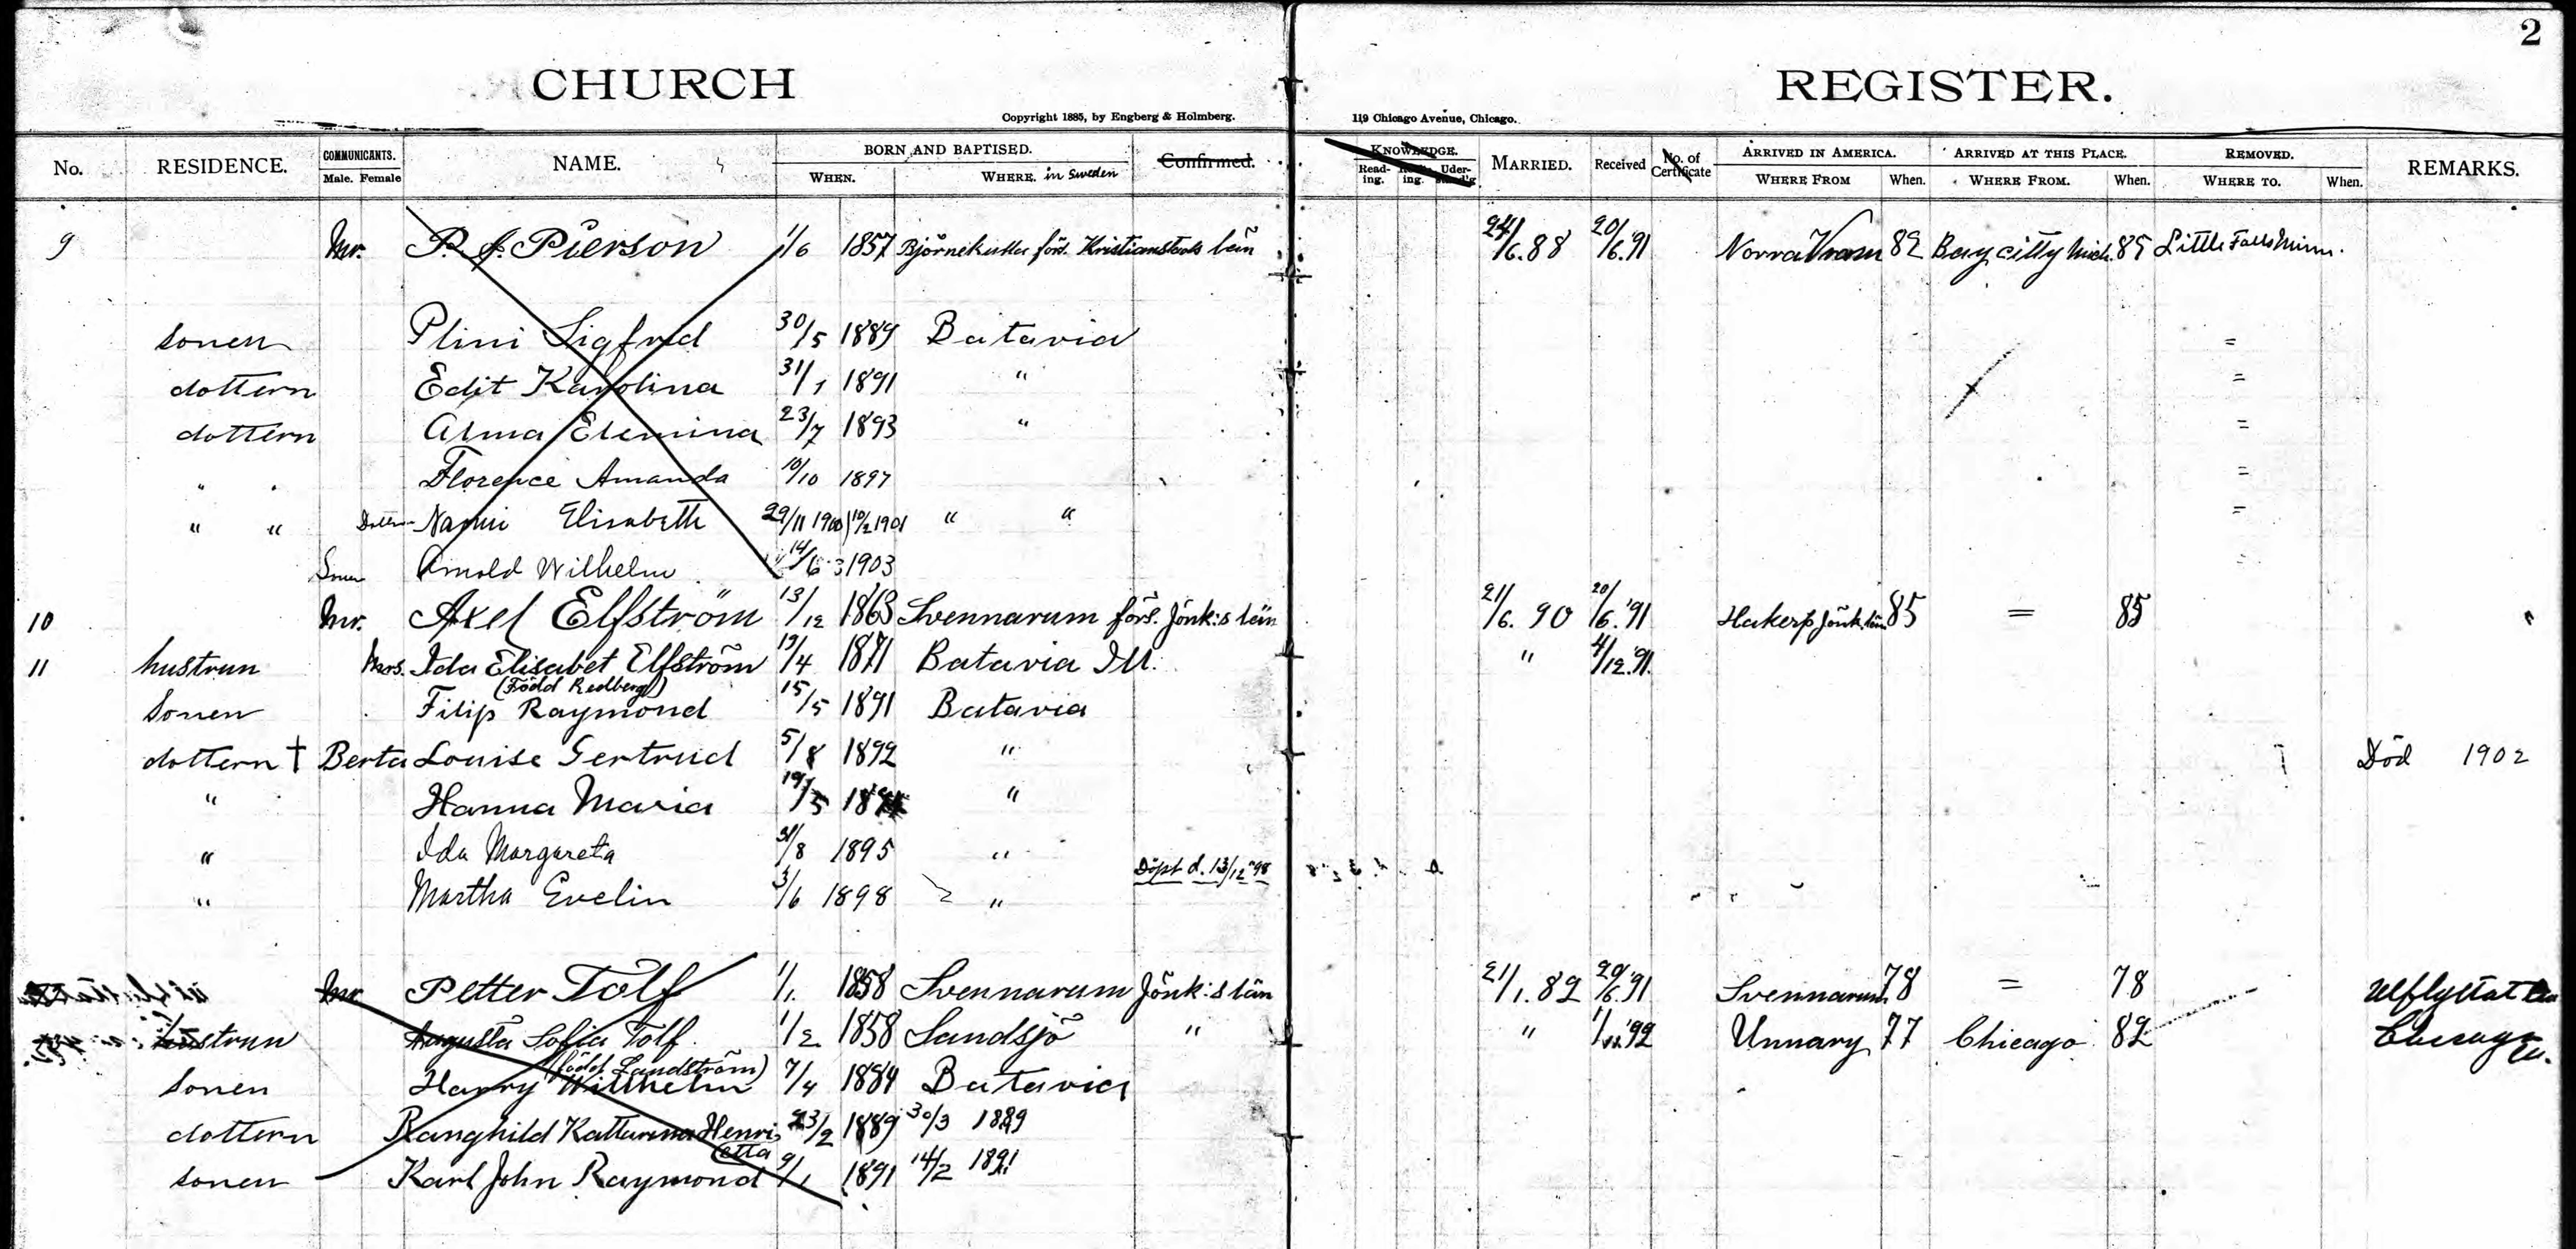 2
CHURCH REGISTER.
Copyright 1885, by Engberg & Holmberg. 119 Chicago Avenue, Chicago.
No. RESIDENCE. COMMUNICANTS. Male. Female NAME. BORN AND BAPTISED. WHEN. WHERE. in Sweden Confirmed. KNOWLEDGE. Read-ing. MARRIED. Received No. of Certificate ARRIVED IN AMERICA. WHERE FROM When. ARRIVED AT THIS PLACE. WHERE FROM. When. REMOVED. WHERE TO. When. REMARKS.
9 Mr. P. J. Pierson 1/6 1857 förs. Kristianstads län 24/6.88 20/6.91 Norra Vram 82 Bay citty Mich. 85 Little Falls Minn.
sonen Plini Sigfrid 30/5 1889 Batavia =
dottern Edit Karolina 31/1 1891 " =
dottern Alma Elemina 23/7 1893 " =
" " Florence Amanda 10/10 1897 =
" " Dottern Nanni Elisabeth 29/11 1900 10/2 1901 " " =
Sonen Arnold Wilhelm 14/6 1903
10 Mr. Axel Elfström 13/12 1863 Svennarum förs. Jönk:s län 21/6. 90 20/6.'91 Hakerp Jönk. län 85 = 85
11 hustrun Mrs. Ida Elisabet Elfström 19/4 1871 Batavia Ill. " 4/12.'91.
(Född Redberg)
Sonen Filip Raymond 15/5 1891 Batavia
dottern † Berta Louise Gertrud 5/8 1892 " Död 1902
" Hanna Maria 19/5 "
" Ida Margareta 31/8 1895 "
Döpt d. 13/12 '98
" Martha Evelin 3/6 1898 "
Mr Petter Tolf 1/1. 1858 Svennarum Jönk:s län 21/1.82 20/6.'91 Svennarum 78 = 78 Utflyttat
hustrun Augusta Sofia Tolf. 1/2 1858 Sandsjö " " Unnary 77 Chicago 82 Chicago Ill.
(född Landström)
Sonen Harry Willhelm 7/4 1884 Batavia
dottern Ranghild Kattarina Henrietta 23/2 1889 30/3 1889
sonen Karl John Raymond 9/1 1891 14/2 1891